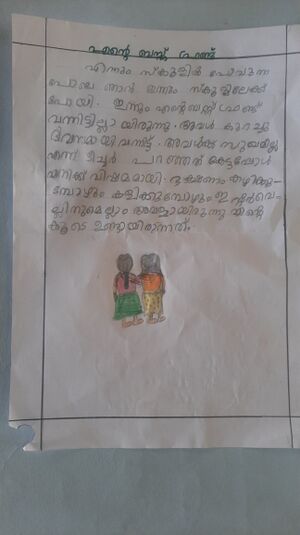 എന്റെ ബസ്റ്റ് ഫ്രണ്ട്
എന്നും സ്കൂളിൽ പോവുന്ന
പോലെ ഞാൻ ഇന്നും സ്കൂളിലേക്ക്
പോയി. ഇന്നും എന്റെ ബസ്റ്റ് ഫ്രണ്ട്
വന്നിട്ടില്ലായിരുന്നു. അവൾ കുറച്ചു
ദിവസമായി വന്നിട്ട്. അവൾക്ക് സുഖമില്ല
എന്ന് ടീച്ചർ പറഞ്ഞത് കേട്ടപ്പോൾ
എനിക്ക് വിഷമമായി. ഭക്ഷണം കഴിക്കു
മ്പോഴും കളിക്കുമ്പോഴും ഇന്റർവെ
ല്ലിനുമെല്ലാം അവളായിരുന്നു എന്റെ
കൂടെ ഉണ്ടായിരുന്നത്.